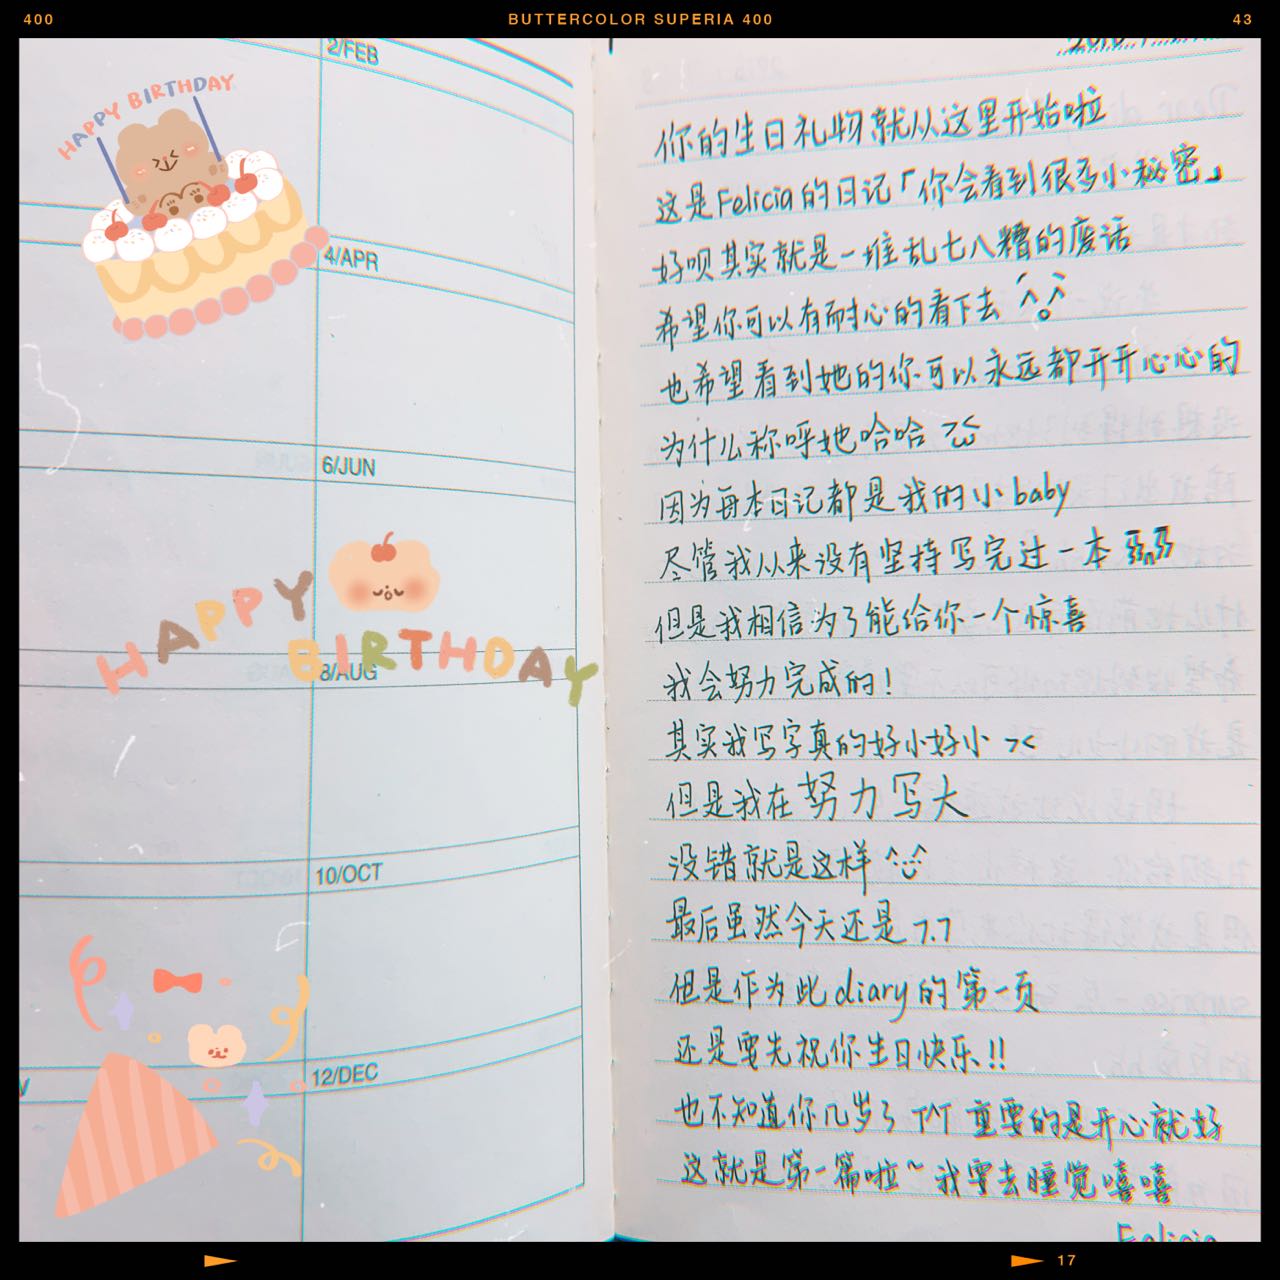 400
BUTTERCOLOR SUPERIA 400
43
HAPPY BIRTHDAY
2/FEB
4/APR
6/JUN
HAPPY
BIRTHDAY
8/AUG
10/OCT
12/DEC
你的生日礼物就从这里开始啦
这是Felicia的日记「你会看到很多小秘密」
好呗其实就是一堆乱七八糟的废话
希望你可以有耐心的看下去
也希望看到她的你可以永远都开开心心的
为什么称呼她哈哈
因为每本日记都是我的小baby
尽管我从来没有坚持写完过一本
但是我相信为了能给你一个惊喜
我会努力完成的!
其实我写字真的好小好小 ><
但是我在努力写大
没错就是这样
最后虽然今天还是7.7
但是作为此diary的第一页
还是要先祝你生日快乐!!
也不知道你几岁了 T^T 重要的是开心就好
这就是第一篇啦~我要去睡觉嘻嘻
Felicia
17